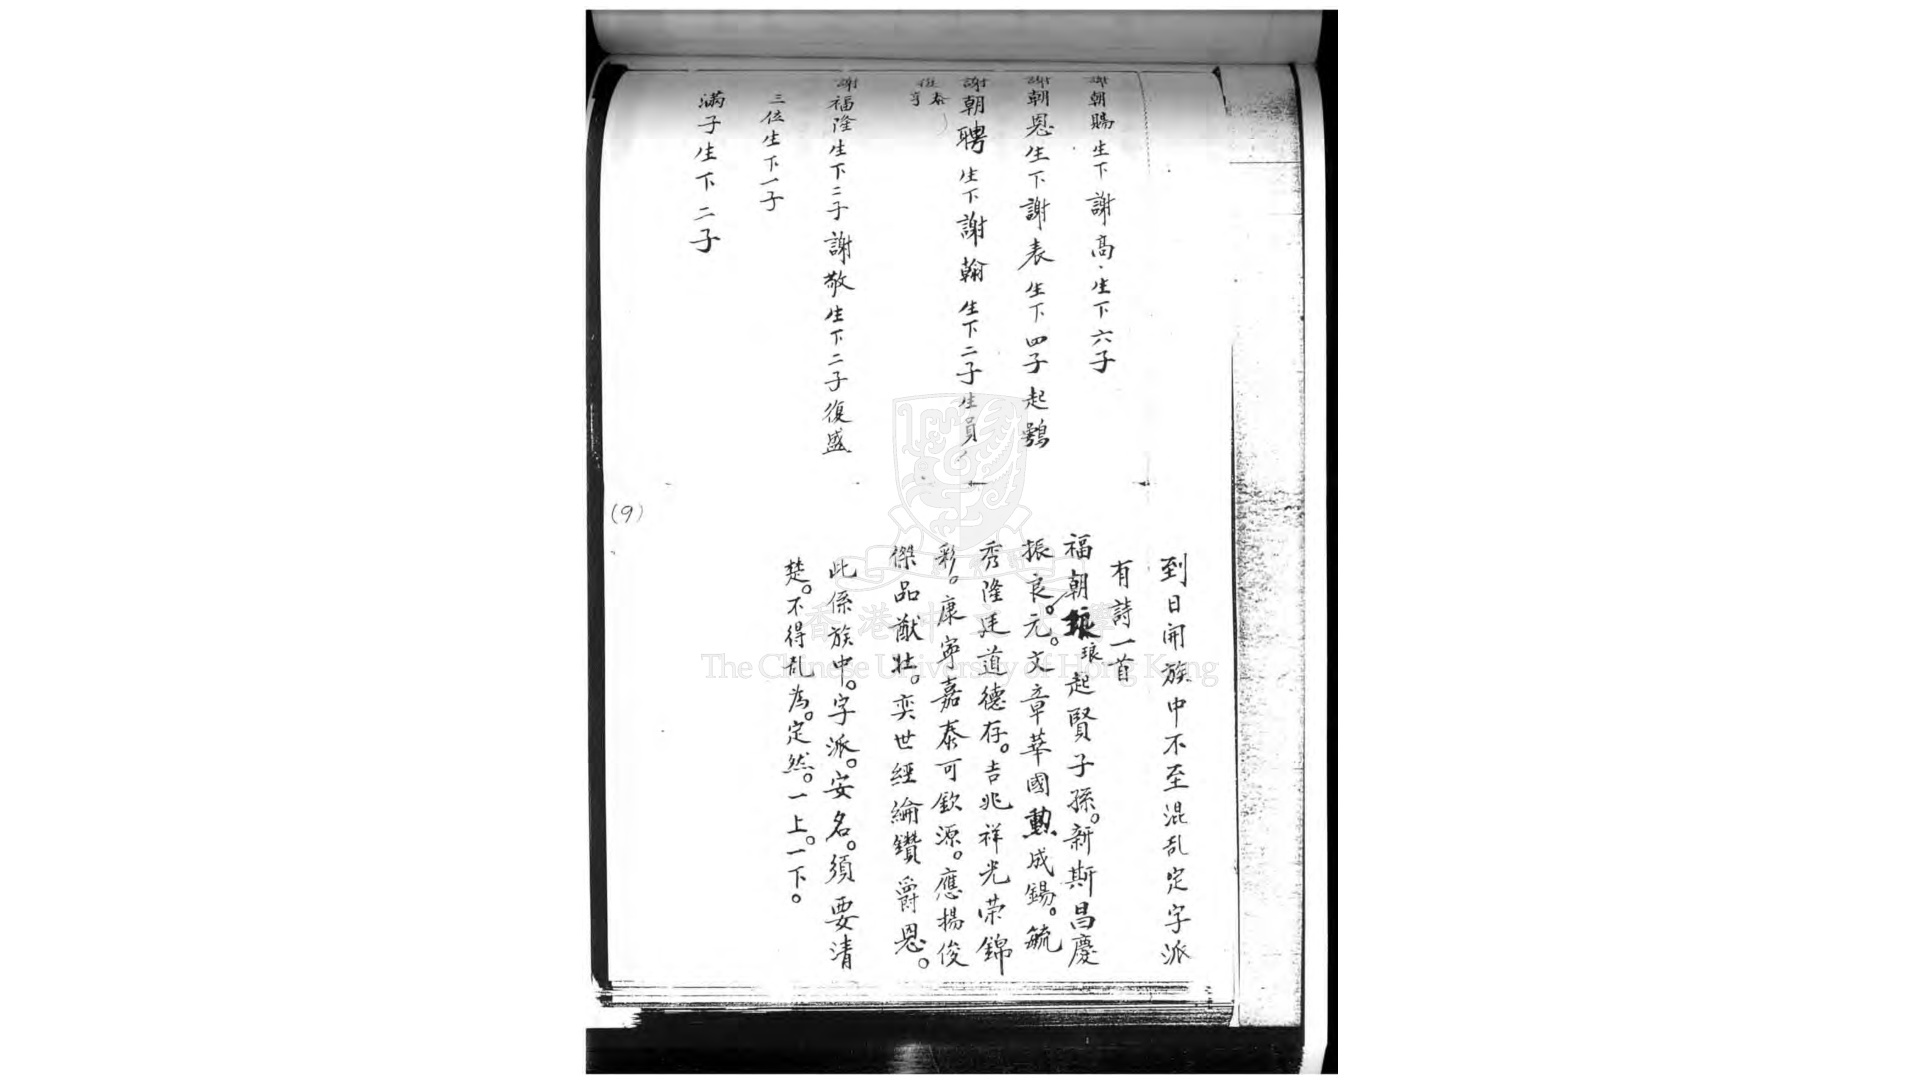 謝朝賜生下謝高·生下六子
謝朝恩生下謝表生下四子起鶚
謝朝聘生下謝翰生下二子生員
謝福隆生下二子謝敬生下二子復盛
三位生下一子
滿子生下二子
(9)
到日開族中不至混乱定字派
有詩一首
福朝琅起賢子孫。新斯昌慶
振良。元。文章華國勲成錫。毓
秀隆廷道德存。吉兆祥光荣錦
彩。康寧嘉泰可欽源。應揚俊
傑品猷壮。奕世經綸鑽爵恩。
此係族中。字派。安名。須要清
楚。不得乱為。定然。一上。一下。
香港中文大學
The Chinese University of Hong Kong